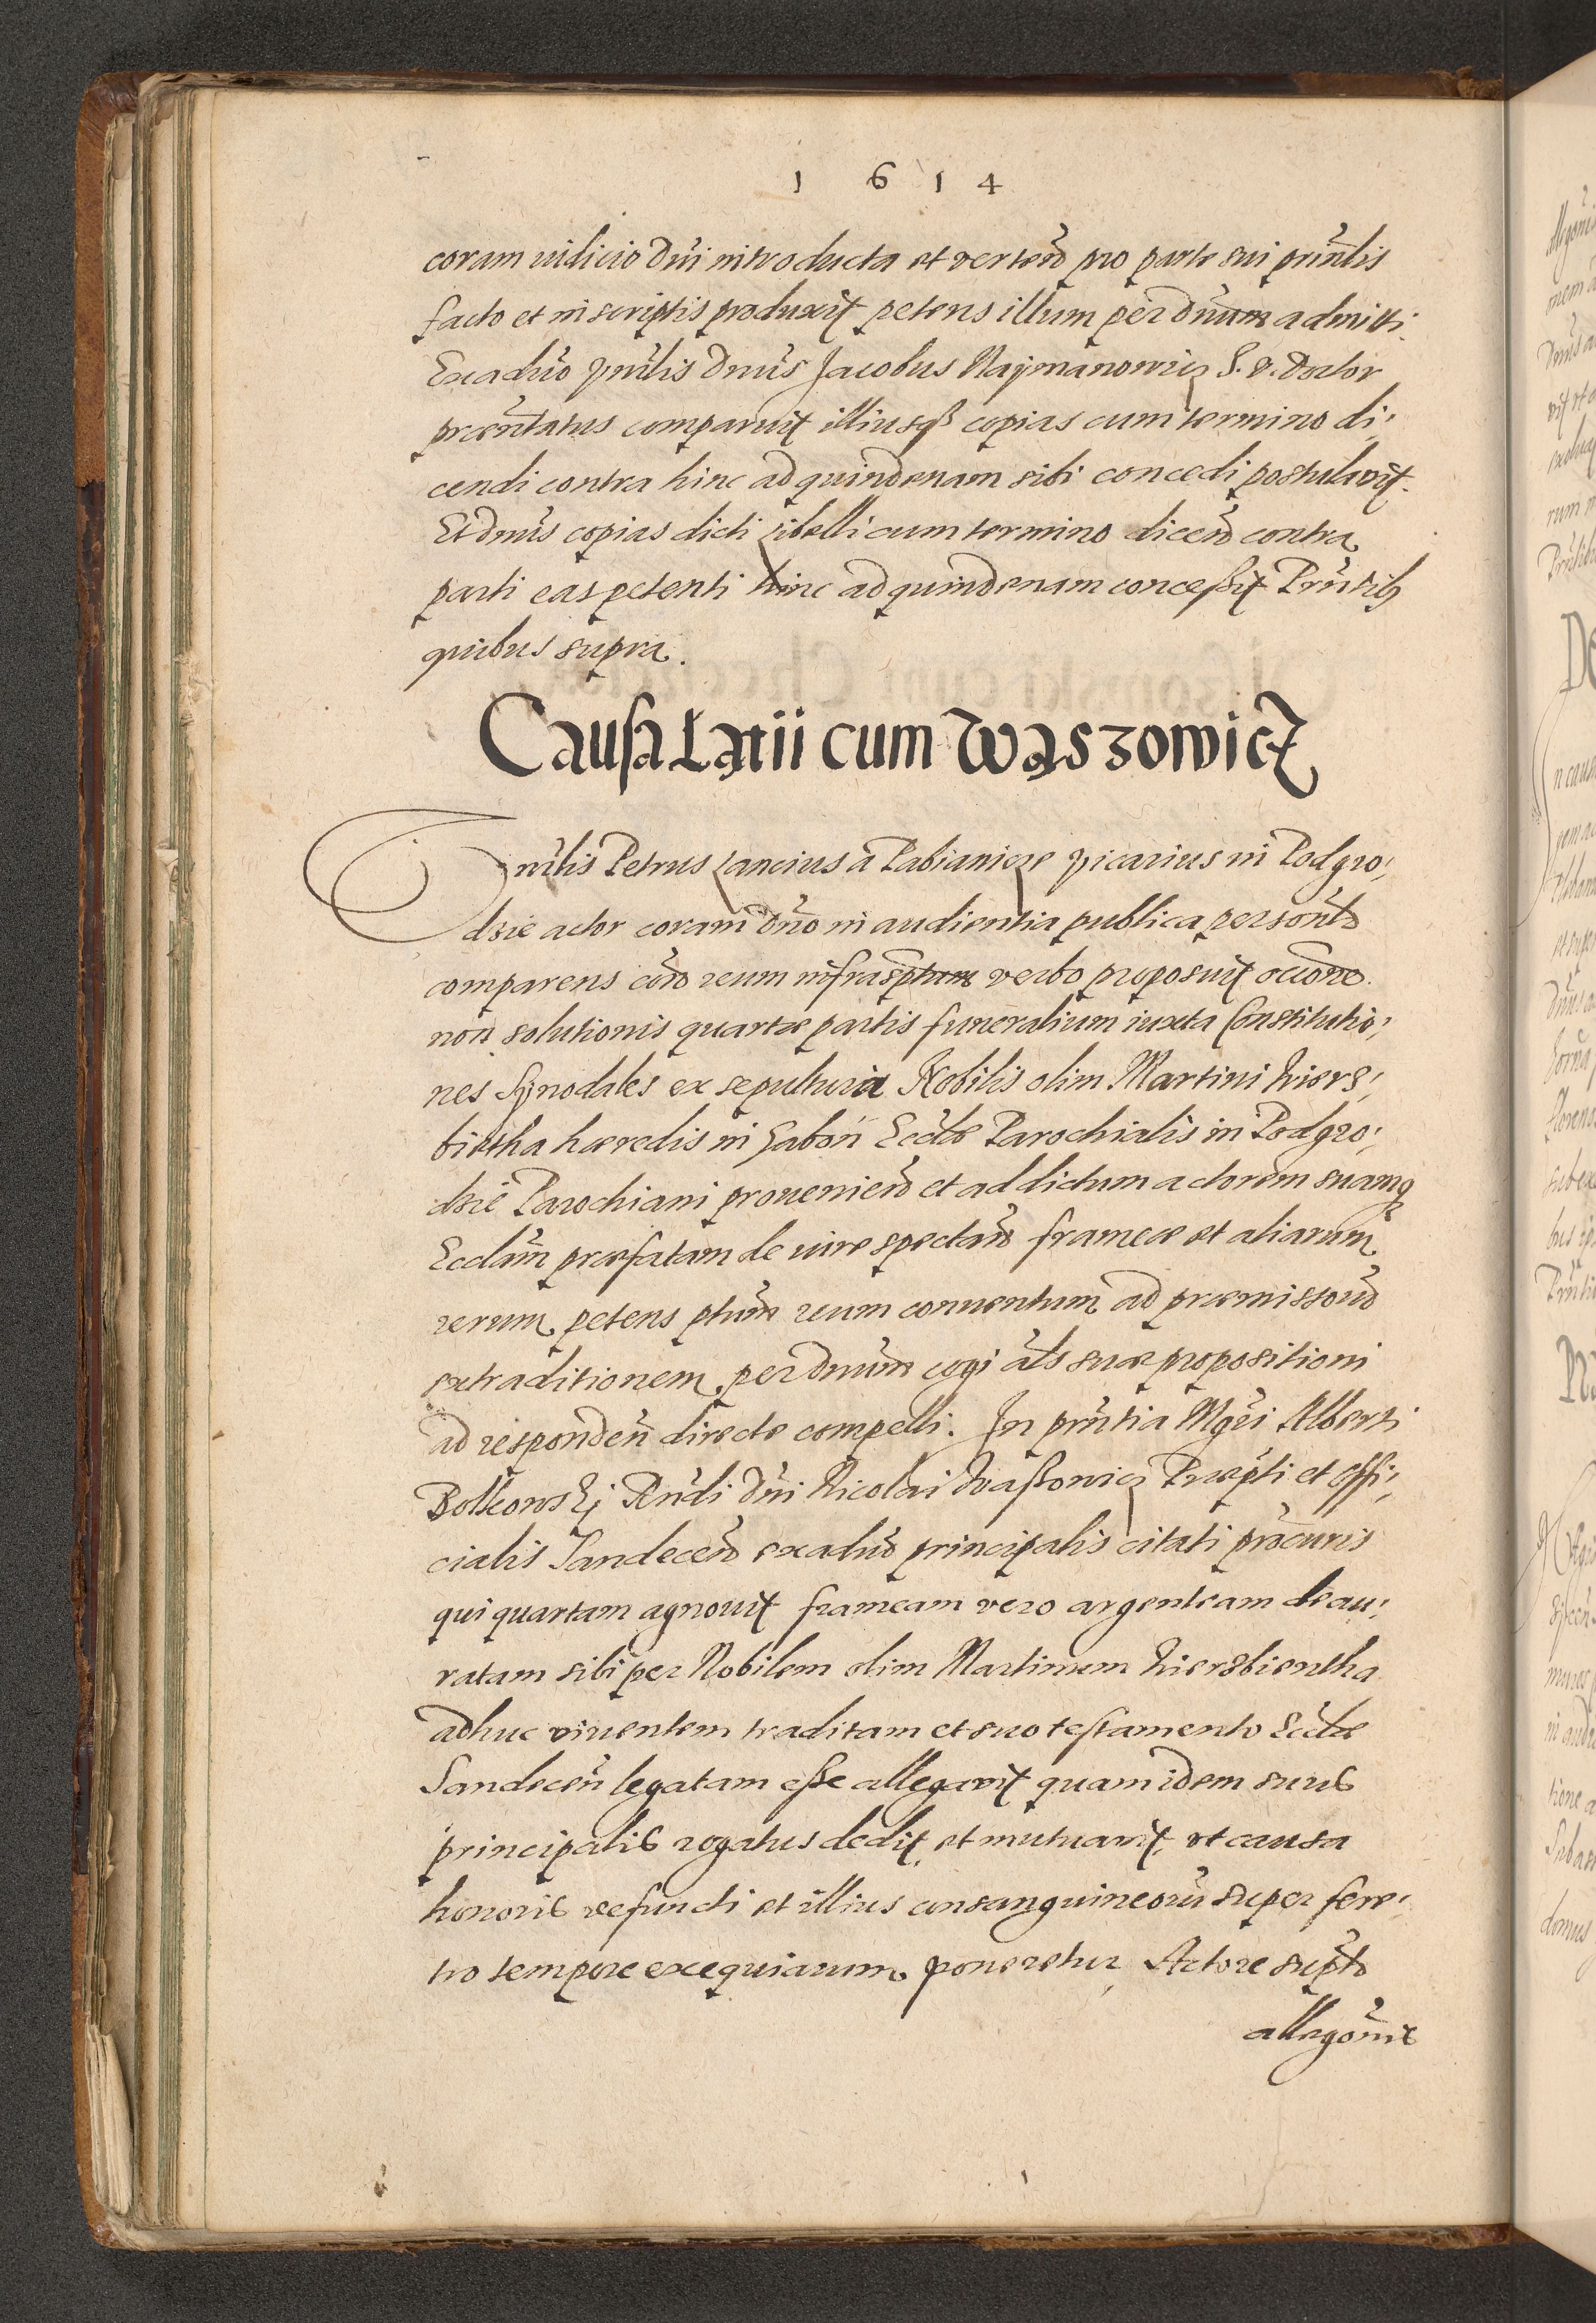 1 6 1 4
coram iudicio Dni introducta et verteñ pro parte sui prinlis
facto et in scriptis produxit petens illum per Dnum admitti.
Exaduo Vnrlis Dnus Jacobus Naÿmanowicz S. T. Doctor
præntatus comparuit illiusq copias cum termino di,
cendi contra hinc ad quindenam sibi concedi postulavit.
Et Dnus copias dicti libelli cum termino diceñ contra
parti eas petenti hinc ad quindenam concessit Prntibq
quibus supra.
Causa Łątii cum Wąszowicz
Vnrlis Petrus Lancius à Pabianicze Vicarius in Podgro,
dzie actor coram Dno in audientia publica personlr
comparens coñ reum infrasptum verbo proposuit occõne
non solutionis quartæ partis funeralium iuxta Constitutio,
nes Sÿnodales ex sepultura Nobilis olim Martini Wierz,
bietha hæredis in Gaboñ Eccliæ Parochialis in Podgro,
dzie Parochiani prouenieñ et ad dictum actorem suamq
Ecclam præfatam de iure spectañ frameæ et aliarum
rerum petens ptum reum conuentum ad præmissorũ
extraditionem per Dnum cogi als suæ propositioni
ad respondeñ directe compelli. In prntia Mgri Alberti
Borkowskj Rndi Dni Nicolai Waszowicz Præpti et offi,
cialis Sandeceñ exaduo principalis citati procuris
qui quartam agnouit frameam vero argenteam deau,
ratam sibi per Nobilem olim Martinum Wierzbientha
adhuc viuentem traditam et suo testamento Eccliæ
Sandeceñ legatam esse allegavit quam idem suus
principalis rogatus dedit et mutuavit vt causa
honoris defuncti et illius consanguineorũ super fere,
tro tempore exequiarum poneretur Actore supto
allegõnis